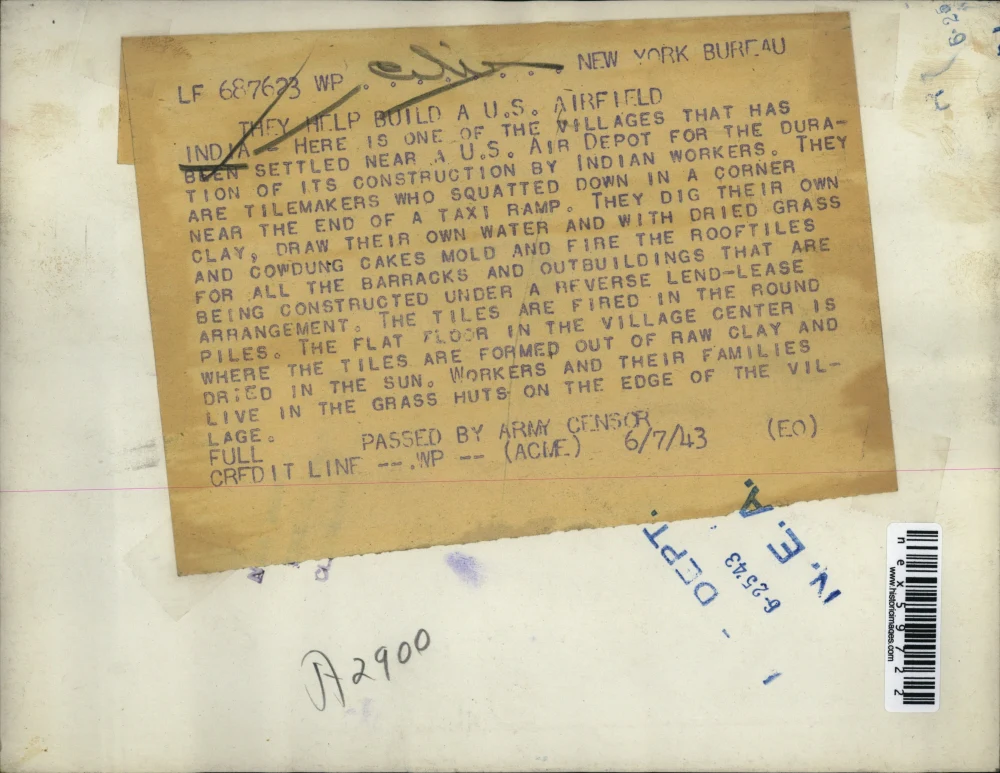 LF 687623 WP . . . . . . . NEW YORK BUREAU
THEY HELP BUILD A U.S. AIRFIELD
INDIA -- HERE IS ONE OF THE VILLAGES THAT HAS
BEEN SETTLED NEAR A U.S. AIR DEPOT FOR THE DURA-
TION OF ITS CONSTRUCTION BY INDIAN WORKERS. THEY
ARE TILEMAKERS WHO SQUATTED DOWN IN A CORNER
NEAR THE END OF A TAXI RAMP. THEY DIG THEIR OWN
CLAY, DRAW THEIR OWN WATER AND WITH DRIED GRASS
AND COWDUNG CAKES MOLD AND FIRE THE ROOFTILES
FOR ALL THE BARRACKS AND OUTBUILDINGS THAT ARE
BEING CONSTRUCTED UNDER A REVERSE LEND-LEASE
ARRANGEMENT. THE TILES ARE FIRED IN THE ROUND
PILES. THE FLAT FLOOR IN THE VILLAGE CENTER IS
WHERE THE TILES ARE FORMED OUT OF RAW CLAY AND
DRIED IN THE SUN. WORKERS AND THEIR FAMILIES
LIVE IN THE GRASS HUTS ON THE EDGE OF THE VIL-
LAGE.
FULL PASSED BY ARMY CENSOR 6/7/43 (EO)
CREDIT LINE --.WP -- (ACME)
N. E. A.
6-25'43
DEPT.
A2900
nex59722
www.historicimages.com